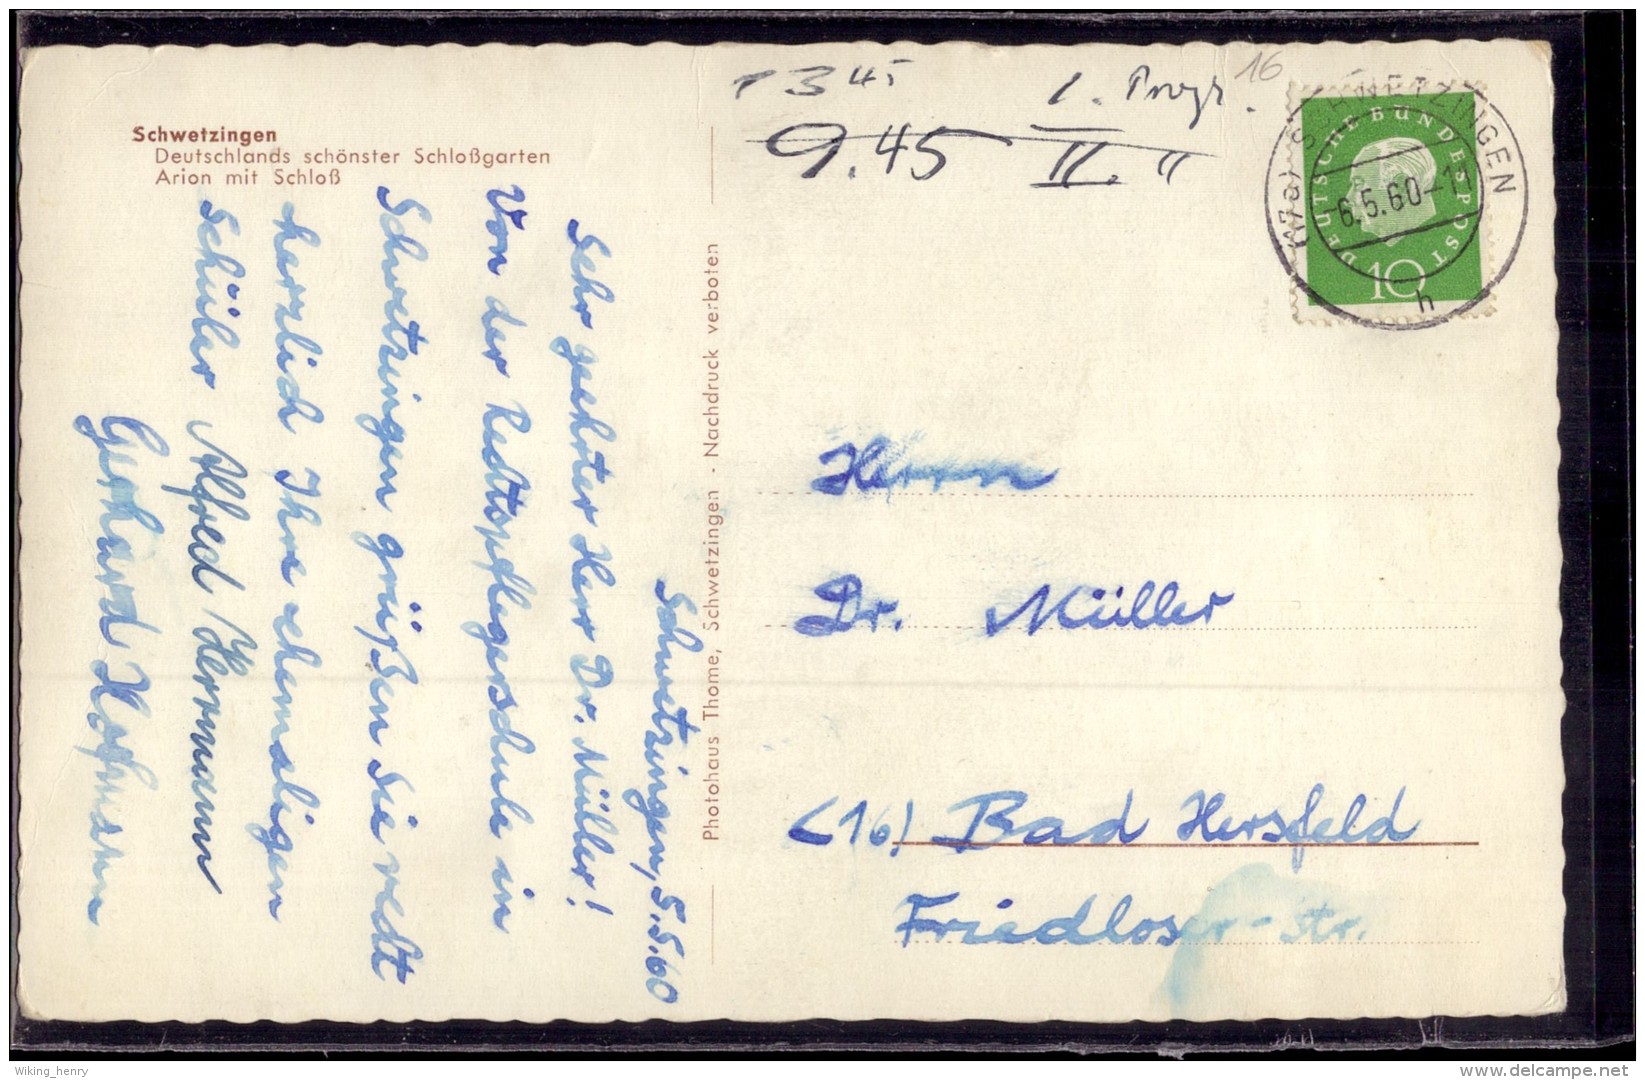 Schwetzingen
Deutschlands schönster Schloßgarten
Arion mit Schloß
Schwetzingen, 5.5.60
Sehr geehrter Herr Dr. Müller!
Von der Rechtspflegerschule in
Schwetzingen grüßen Sie recht
herzlich Ihre ehemaligen
Schüler Alfred Hermann
Gerhard Hofmann
Photohaus Thome, Schwetzingen - Nachdruck verboten
13 45 1. Progr.
9.45 II. "
16
(17a) SCHWETZINGEN
-6.5.60-1
h
DEUTSCHE BUNDESPOST
10
Herrn
Dr. Müller
(16) Bad Hersfeld
Friedloser-Str.
Wiking_henry
www.delcampe.net